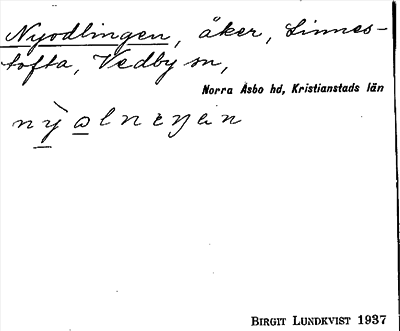 Nyodlingen, åker, Linnes-
tofta, Vedby sn,
Norra Åsbo hd, Kristianstads län
BIRGIT LUNDKVIST 1937